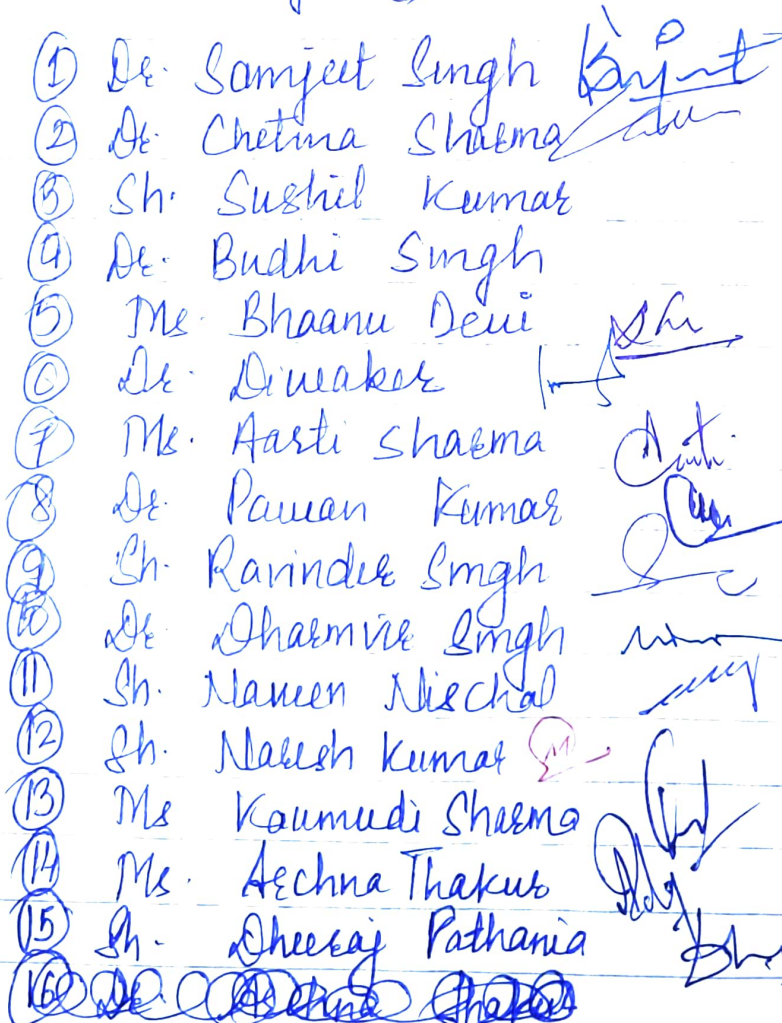 1 Dr. Samjeet Singh
2 Dr. Chetna Sharma
3 Sh. Sushil Kumar
4 Dr. Budhi Singh
5 Ms. Bhaanu Devi
6 Dr. Diwaker
7 Ms. Aarti Sharma
8 Dr. Pawan Kumar
9 Sh. Ravinder Singh
10 Dr Dharmvir Singh
11 Sh. Naveen Nischal
12 Sh. Naresh Kumar
13 Ms Kaumudi Sharma
14 Ms. Archna Thakur
15 Sh. Dheeraj Pathania
16 Dr Archna Thakur